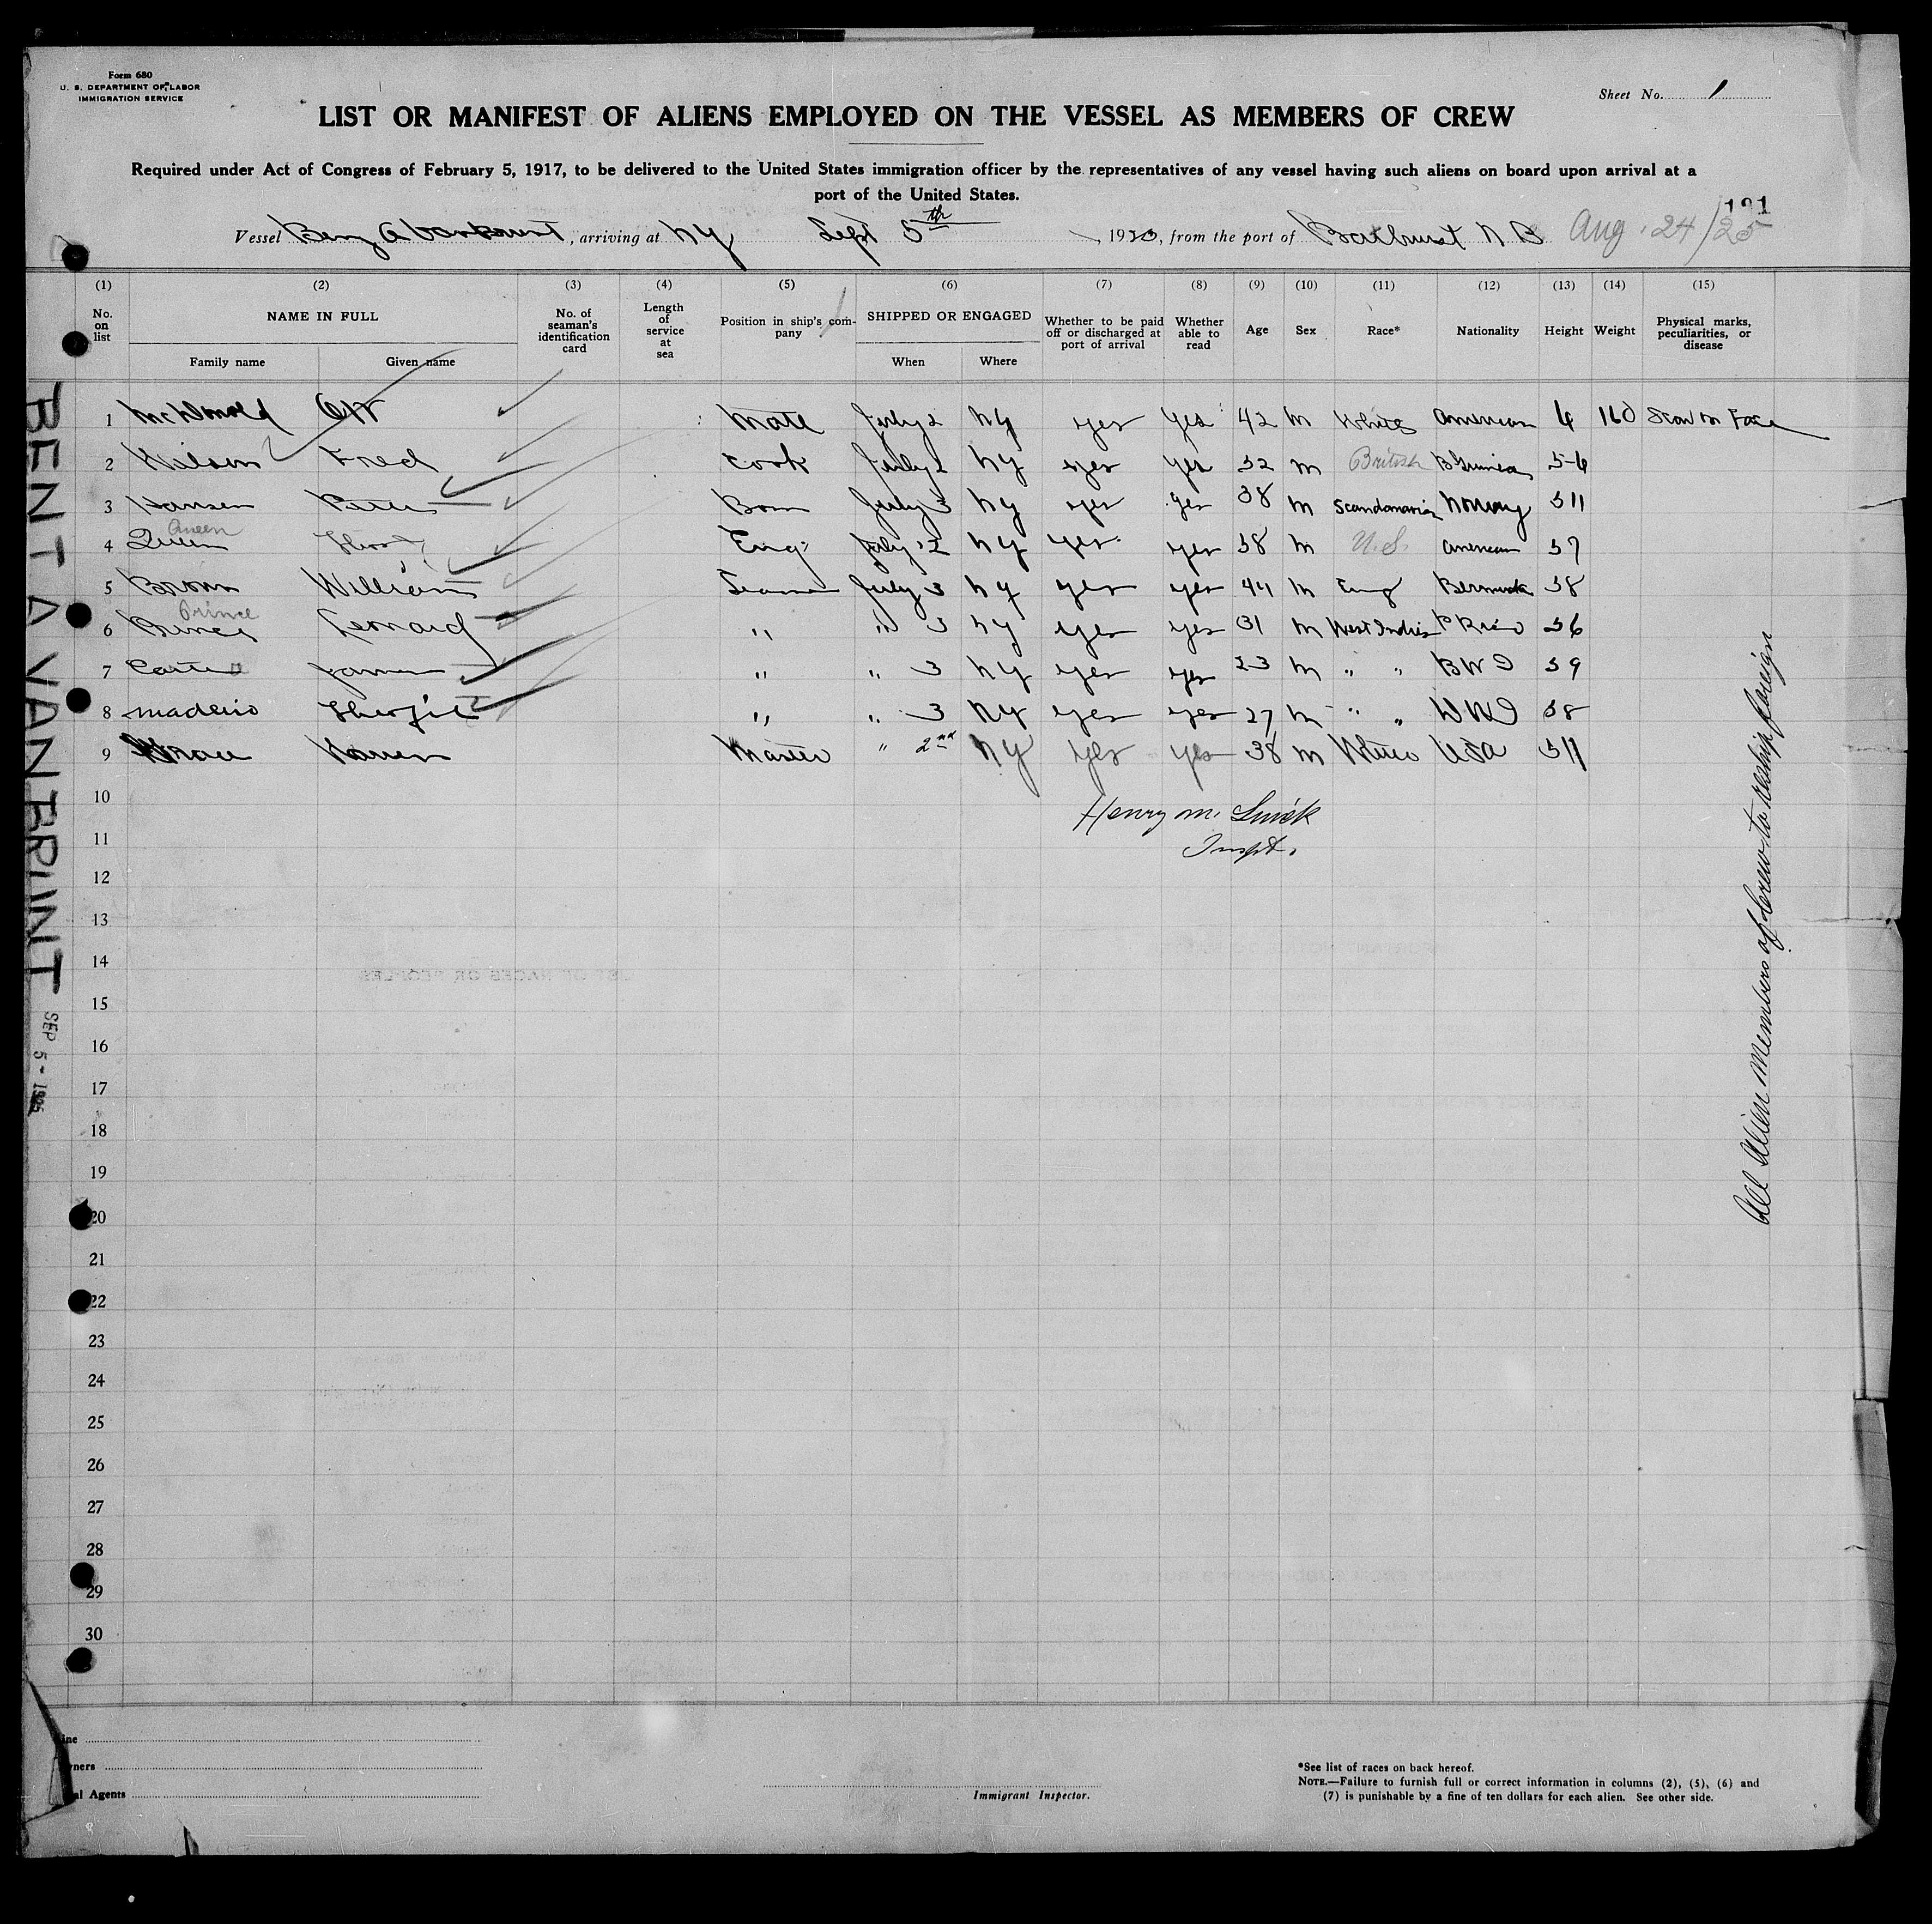 Form 680
U. S. DEPARTMENT OF LABOR
IMMIGRATION SERVICE
Sheet No. 1
LIST OR MANIFEST OF ALIENS EMPLOYED ON THE VESSEL AS MEMBERS OF CREW
Required under Act of Congress of February 5, 1917, to be delivered to the United States immigration officer by the representatives of any vessel having such aliens on board upon arrival at a
port of the United States.
Vessel Benj A, arriving at NY Sept 5th, 19, from the port of Bathurst N B Aug. 24/25
(1) (2) (3) (4) (5) (6) (7) (8) (9) (10) (11) (12) (13) (14) (15)
No. on list NAME IN FULL No. of seaman's identification card Length of service at sea Position in ship's company SHIPPED OR ENGAGED Whether to be paid off or discharged at port of arrival Whether able to read Age Sex Race* Nationality Height Weight Physical marks, peculiarities, or disease
Family name Given name When Where
1 McDonald Mate July 2 NY yes yes 42 M White American 6 160 Scar on Face
2 Wilson Fred Cook July 2 NY yes yes 32 M British B Guinea 5-6
3 Hansen Peter July 3 NY yes yes 38 M Scandanavian Norway 5 11
Queen
4 Queen Eng July 2 NY yes yes 38 M U.S. American 5 7
5 Brown William Seaman July 3 NY yes yes 44 M Eng Bermuda 5 8
Prince
6 Prince Leonard " " 3 NY yes yes 31 M West Indies P Rico 5 6
7 Carter James " " 3 NY yes yes 23 M " " B W I 5 9
8 Madeiro " " 3 NY yes yes 27 M " " 5 8
9 Warren Master " 2nd NY yes yes 38 M White USA 5 11
10
Henry M. Quick
11
Inspt.
12
13
14
15
16
17
18
19
20
21
22
23
24
25
26
27
28
29
30
BENT A VAN BRUNT
SEP 5 - 1925
All Alien Members of Crew to reship foreign
Agents
Immigrant Inspector.
*See list of races on back hereof.
NOTE.—Failure to furnish full or correct information in columns (2), (5), (6) and
(7) is punishable by a fine of ten dollars for each alien. See other side.